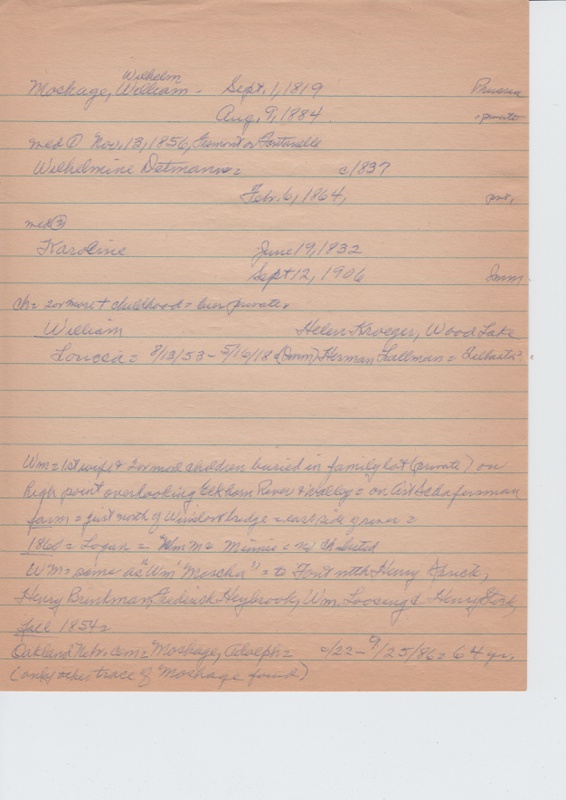 Wilhelm
Moshage, William - Sept. 1, 1819 Prussia
Aug. 9, 1884 private
med ① Nov. 13, 1856, Fremont or Fontanelle
Wilhelmine Detmann = c/1837
Feb. 6, 1864, pvt.
med ②
Karoline June 19, 1832
Sept 12, 1906 Imm.
Ch = 2 or more + childhood = bur private.
William Helen Kroeger, Wood Lake
Louisa = 8/13/53 - 5/16/18 (Imm) Herman
Wm = 1st wife & 2 or more children buried in family lot (private) on
high point overlooking Elkhorn River & Valley = on Schaferman
farm = just north of Winslow bridge = east side of river =
1860 = Logan = Wm M = Minnie = no ch listed
Wm = same as "Wm Moscha" = to Font with Henry
Henry Brinkman, Frederick Heybrook, Wm. Loosing & Henry Stork,
Fall 1854 =
Oakland Nebr. cem = Moshage, Adolph = c/22 - 9/25/86 = 64 yr.
(only other trace of Moshage found)